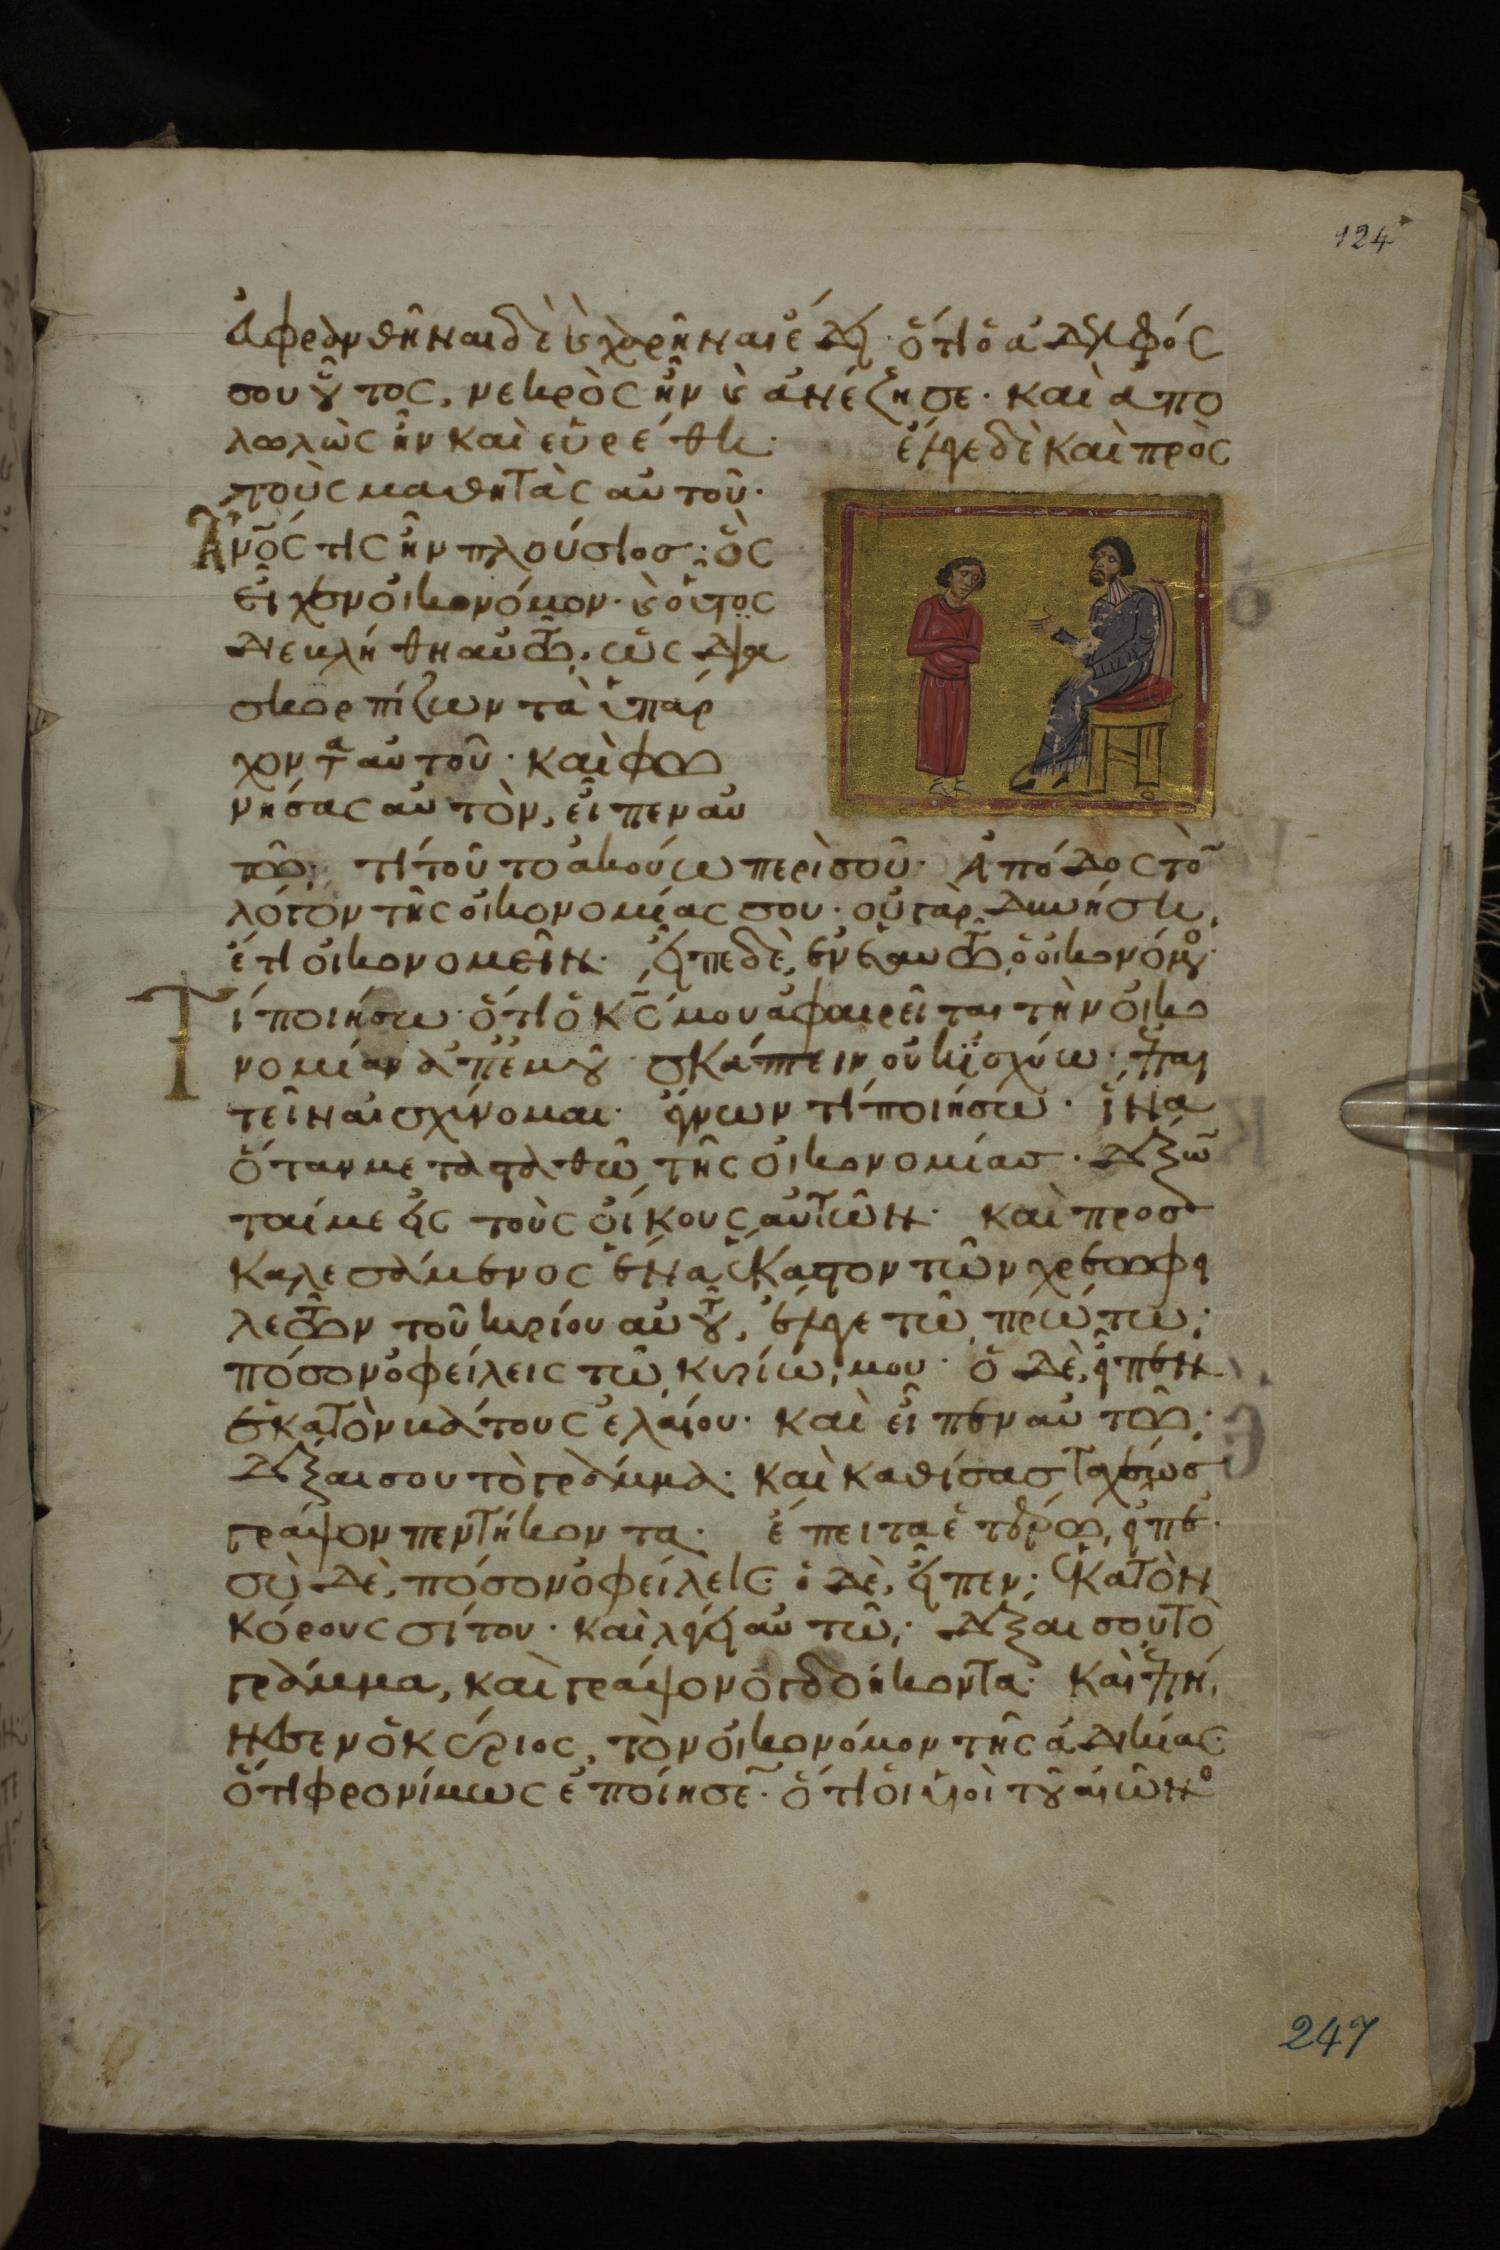 124
εὐφρανθῆναι δὲ κ̀ χαρῆναι ἔδει· ὅτι ὁ ἀδελφός
σου οὗτος, νεκρὸς ἦν κ̀ ἀνέζησε· καὶ ἀπο
λωλὼς ἦν καὶ εὑρέθη· ἔλεγε δὲ καὶ πρὸς
τοὺς μαθητὰς αὐτοῦ·
ἄνο̅ς τις ἦν πλούσιος· ὃς
εἶχεν οἰκονόμον· κ̀ οὗτος
διεβλήθη αὐτῶ, ὡς δια
σκορπίζων τὰ ὑπάρ
χοντα αὐτοῦ· καὶ φω
νήσας αὐτὸν, εἶπεν αὐ
τῶ· τί τοῦτο ἀκούω περὶ σοῦ· ἀπόδος τὸ̅
λόγον τῆς οἰκονομίας σου· οὐ γὰρ δυνήση
ἔτι οἰκονομεῖν· εἶπε δὲ, ἐν ἑαυτῶ, ὁ οἰκονόμο
Τί ποιήσω· ὅτι ὁ κ̅ς μου ἀφαιρεῖται τὴν οἰκο
νομίαν ἀπ' ἐμοῦ· σκάπτειν οὐκ ἰσχύω· ἐπαι
τεῖν αἰσχύνομαι· ἔγνων τί ποιήσω· ἵνα
ὅταν μετασταθῶ τῆς οἰκονομίας· δέξων
ταί με εἰς τοὺς οἴκους αὐτῶν· καὶ προσ
καλεσάμενος ἕνα ἕκαστον τῶν χρεωφει
λετῶν τοῦ κυρίου αὐτοῦ, ἔλεγε τῶ πρώτω·
πόσον ὀφείλεις τῶ κυρίω μου· ὁ δὲ, εἶπεν
ἑκατὸν βάτους ἐλαίου· καὶ εἶπεν αὐτῶ·
δέξαι σου τὸ γράμμα· καὶ καθίσας ταχέως
γράψον πεντήκοντα· ἔπειτα ἑτέρω, εἶπε·
σὺ δὲ, πόσον ὀφείλεις· ὁ δὲ, εἶπεν· ἑκατὸν
κόρους σίτου· καὶ λέγει αὐτῶ· δέξαι σου τὸ
γράμμα, καὶ γράψον ὀγδοήκοντα· καὶ ἐπή
νεσεν ὁ κύριος, τὸν οἰκονόμον τῆς ἀδικίας
ὅτι φρονίμως ἐποίησε̅· ὅτι οἱ υἱοὶ τοῦ αἰῶνο
247